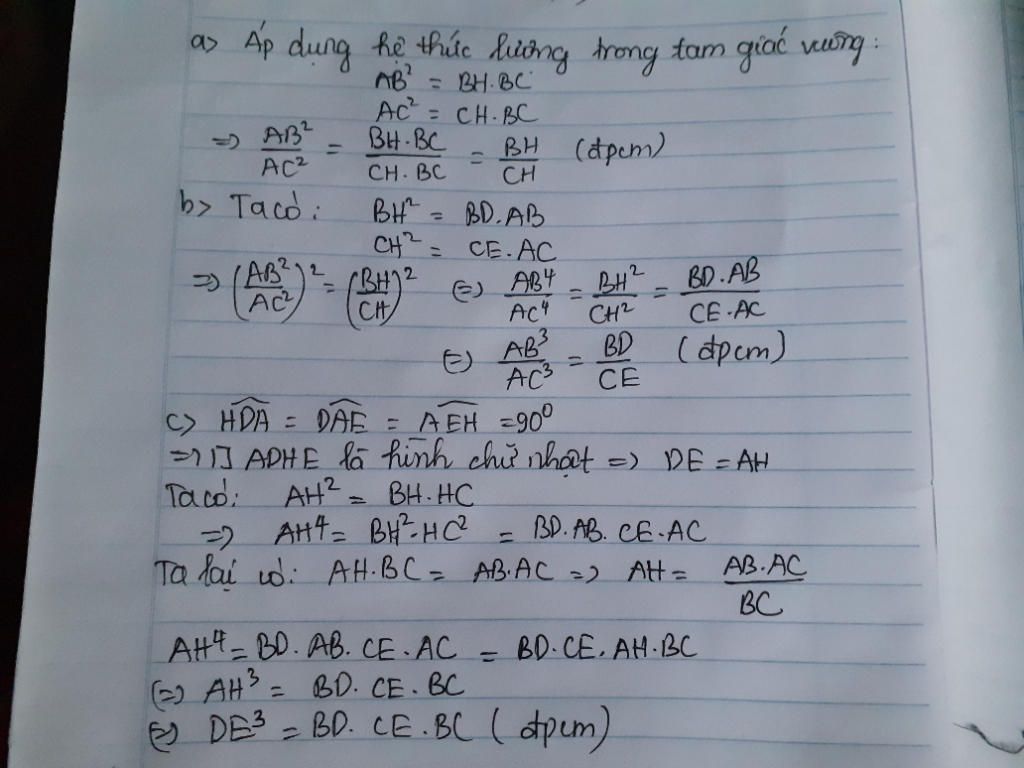 a> Áp dụng hệ thức lượng trong tam giác vuông:
AB² = BH.BC
AC² = CH.BC
=> AB²/AC² = BH.BC/CH.BC = BH/CH (đpcm)
b> Ta có: BH² = BD.AB
CH² = CE.AC
=> (AB²/AC²)² = (BH/CH)² (=) AB⁴/AC⁴ = BH²/CH² = BD.AB/CE.AC
(=) AB³/AC³ = BD/CE (đpcm)
c> HDA = DAE = AEH = 90⁰
=> ADHE là hình chữ nhật => DE = AH
Ta có: AH² = BH.HC
=> AH⁴ = BH².HC² = BD.AB.CE.AC
Ta lại có: AH.BC = AB.AC => AH = AB.AC/BC
AH⁴ = BD.AB.CE.AC = BD.CE.AH.BC
(=) AH³ = BD.CE.BC
(=) DE³ = BD.CE.BC (đpcm)